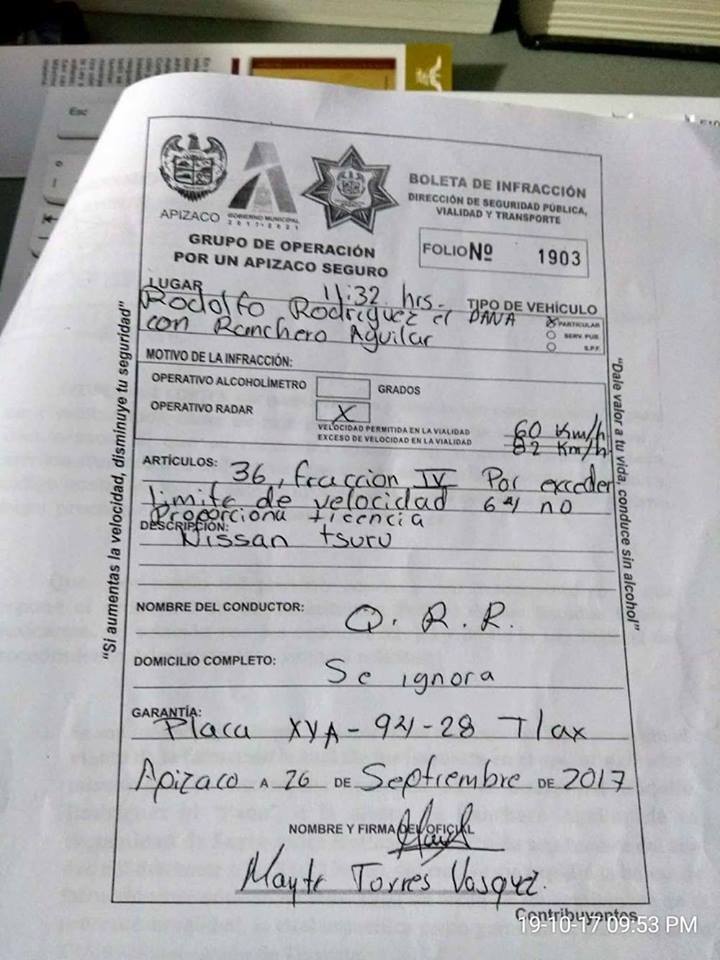 Esc
APIZACO
GOBIERNO MUNICIPAL
2017-2021
BOLETA DE INFRACCIÓN
DIRECCIÓN DE SEGURIDAD PÚBLICA,
VIALIDAD Y TRANSPORTE
GRUPO DE OPERACIÓN
POR UN APIZACO SEGURO
FOLIO Nº 1903
LUGAR 11:32 hrs.
TIPO DE VEHÍCULO
Rodolfo Rodríguez el PANA
con Ranchero Aguilar
X PARTICULAR
SERV. PUB.
S.P.F.
MOTIVO DE LA INFRACCIÓN:
OPERATIVO ALCOHOLÍMETRO GRADOS
OPERATIVO RADAR X
VELOCIDAD PERMITIDA EN LA VIALIDAD 60 Km/h
EXCESO DE VELOCIDAD EN LA VIALIDAD 82 Km/h
ARTÍCULOS: 36, fraccion IV Por exceder
limite de velocidad 64 no
Proporciona licencia
DESCRIPCIÓN:
Nissan tsuru
NOMBRE DEL CONDUCTOR: Q. R. R.
DOMICILIO COMPLETO: Se ignora
GARANTÍA:
Placa XVA-94-28 Tlax
Apizaco A 26 DE Septiembre DE 2017
NOMBRE Y FIRMA DEL OFICIAL
Mayte Torres Vasquez.
"Si aumentas la velocidad, disminuye tu seguridad"
"Dale valor a tu vida, conduce sin alcohol"
Contribuyentes
19-10-17 09:53 PM